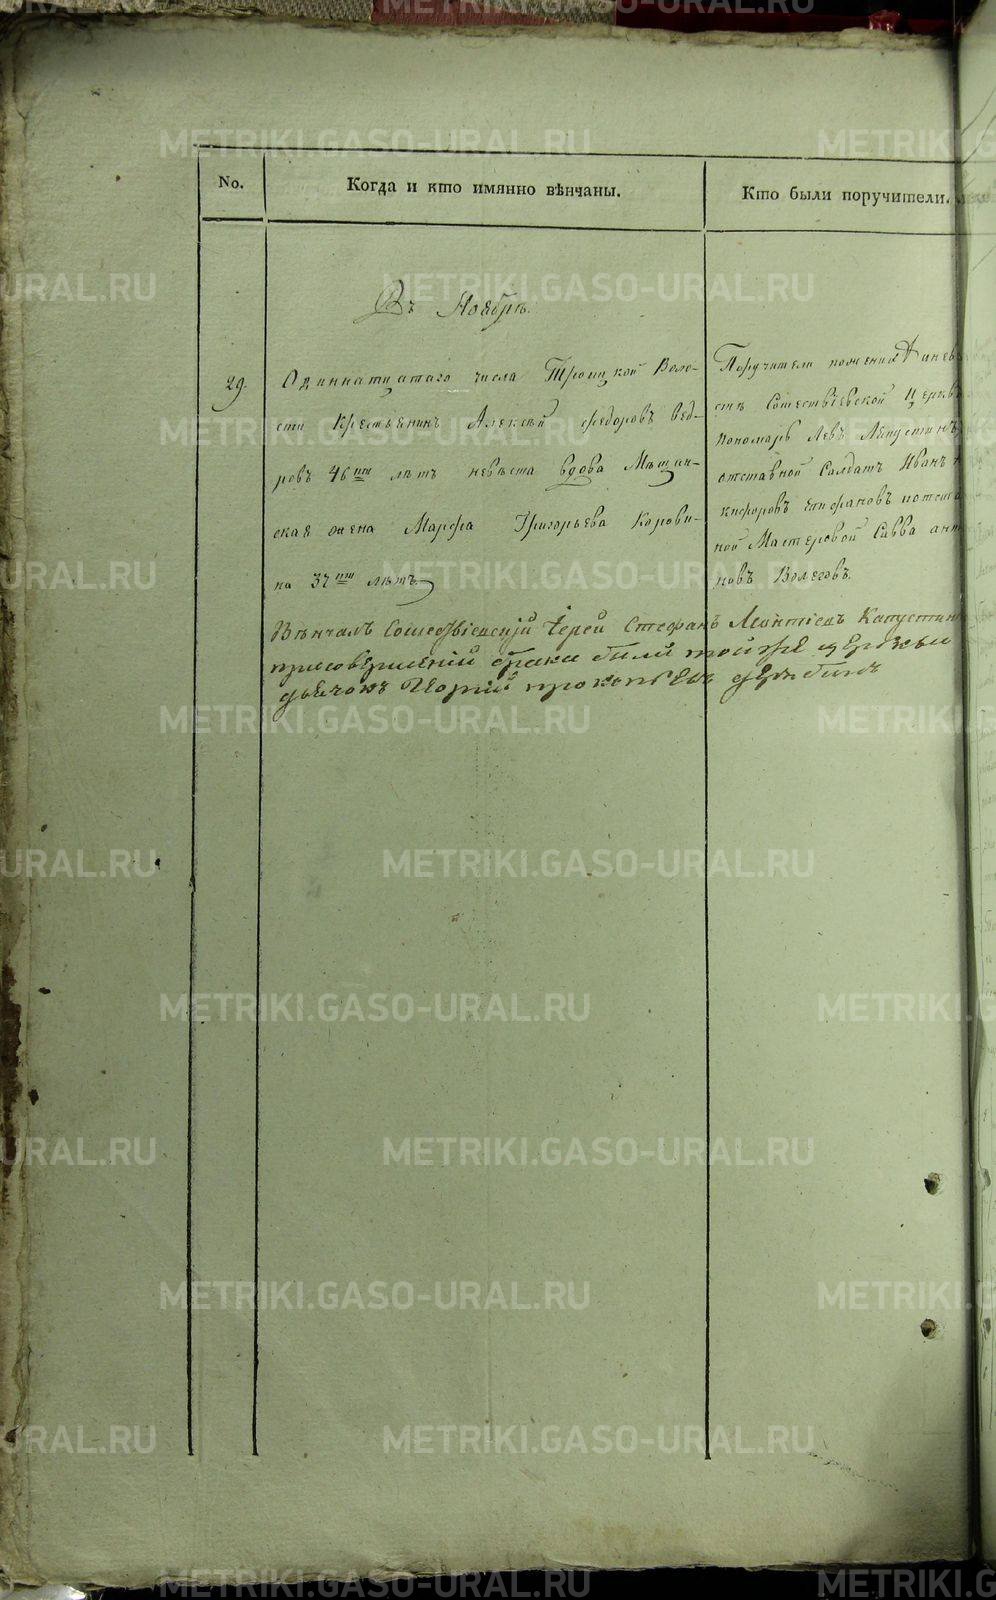 No.
Когда и кто имянно вѣнчаны.
Кто были поручители.
Въ Ноябрѣ.
29.
Одиннатцатаго числа Троицкой Воло-
сти Крестьянинъ Алексѣй Федоровъ Вед-
ровъ 46ти лѣтъ невѣста вдова Мѣщан-
ская жена Марфа Григорьева Корови-
на 37ми лѣтъ.
Поручители по женихѣ
стѣ Сошествіевской Церкви
пономарь Левъ Лепустинъ,
отставной Салдатъ Иванъ
кифоровъ Епифановъ и отста
ной Мастеровой Савва ант
новъ Волеговъ.
Вѣнчалъ Сошествіевскій Іерей Стефанъ Леонтіевъ Капустин
присовершеніи брака были той же церкви
дьячокъ Георгій прокопьевъ дерябинъ
METRIKI.GASO-URAL.RU